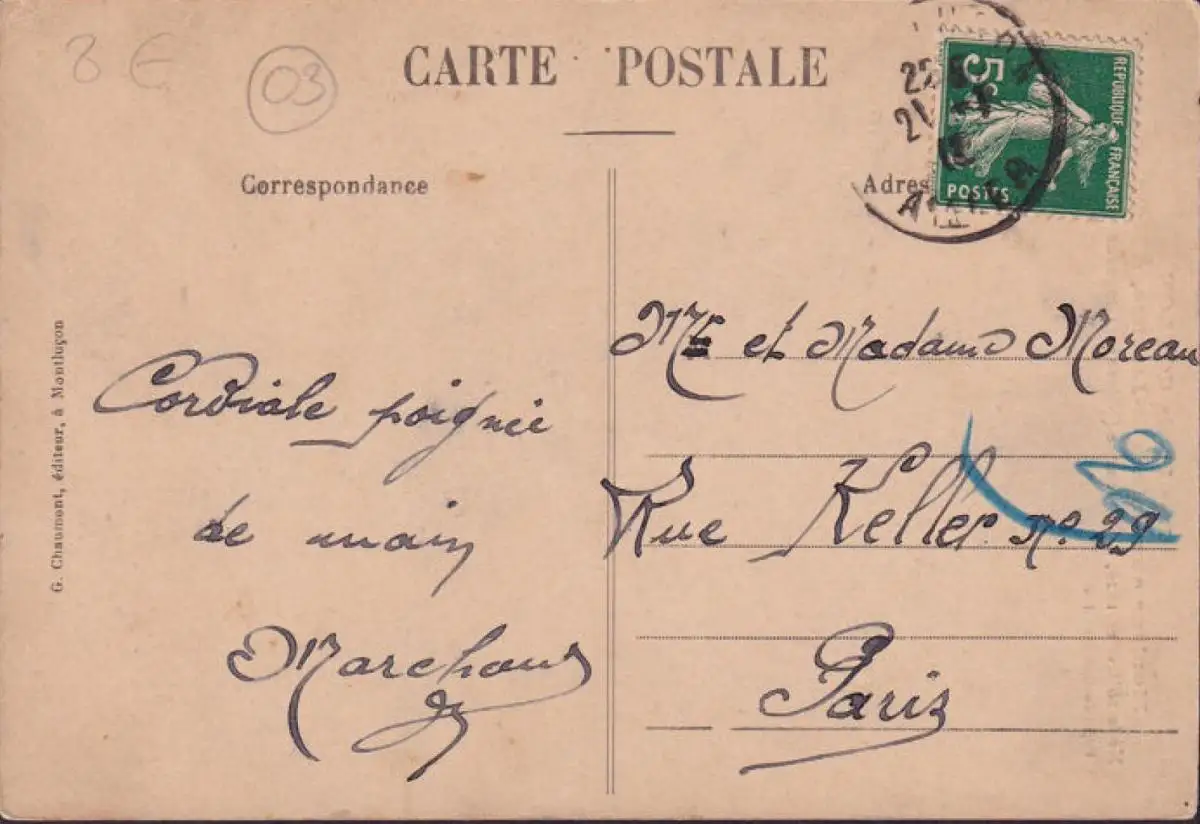 8 €
03
CARTE POSTALE
Correspondance
Adres
5c
REPUBLIQUE FRANÇAISE
POSTES
22
21
G. Chaumont, éditeur, à Montluçon
Cordiale poignée
de main
Marchand
Mr et Madame Moreau
Rue Keller no. 29
Paris